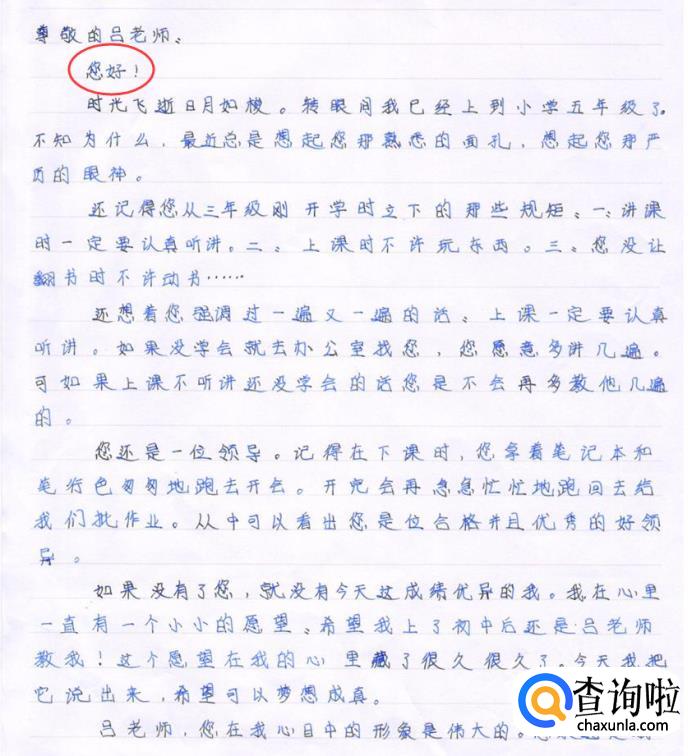 尊敬的吕老师、
您好！
时光飞逝日月如梭。转眼间我已经上到小学五年级了。
不知为什么，最近总是想起您那熟悉的面孔，想起您那严
历的眼神。
还记得您从三年级刚开学时立下的那些规矩、一、讲课
时一定要认真听讲。二、上课时不许玩东西。三、您没让
翻书时不许动书……
还想着您强调过一遍又一遍的话、上课一定要认真
听讲。如果没学会就去办公室找您，您愿意多讲几遍。
可如果上课不听讲还没学会的话您是不会再多教他几遍
的。
您还是一位领导。记得在下课时，您拿着笔记本和
笔行色匆匆地跑去开会。开完会再急急忙忙地跑回去给
我们批作业。从中可以看出您是位合格并且优秀的好领
导。
如果没有了您，就没有今天这成绩优异的我。我在心里
一直有一个小小的愿望、希望我上了初中后还是吕老师
教我！这个愿望在我的心里藏了很久很久了。今天我把
它说出来，希望可以梦想成真。
吕老师，您在我心目中的形象是伟大的。
查询啦
chaxunla.com